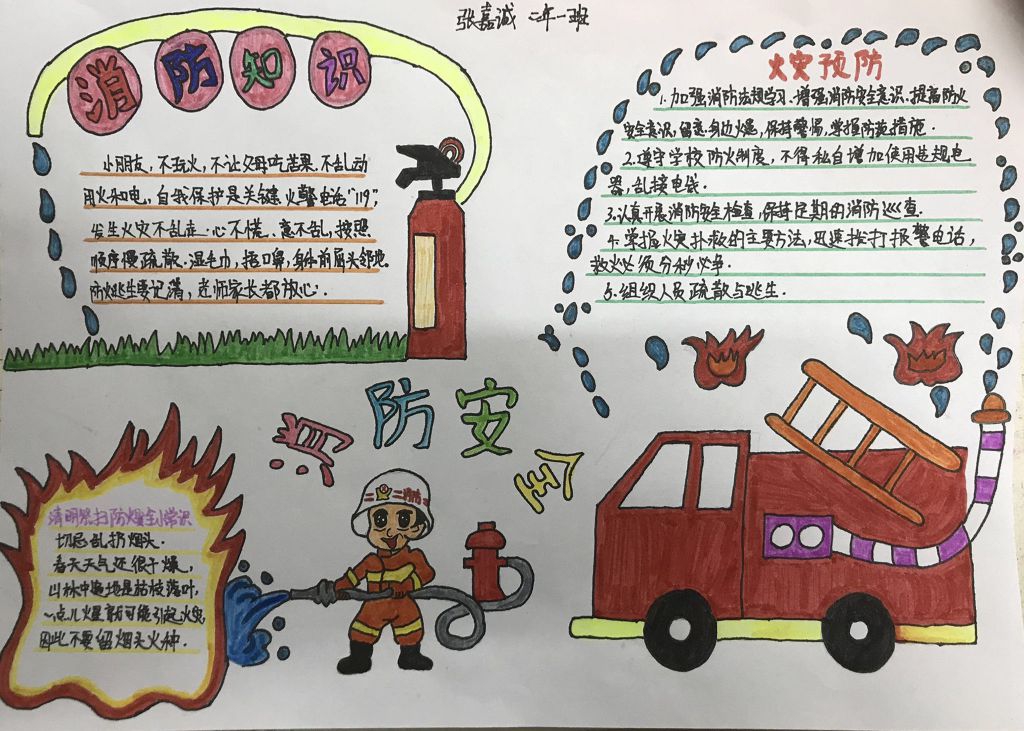 张嘉诚 二年一班
消防知识
小朋友,不玩火,不让父母吃苦果.不乱动
用火和电,自我保护是关键.火警电话“119”,
发生火灾不乱走.心不慌、意不乱,按照
顺序慢疏散.湿毛巾,捂口鼻,身体前屈头邻地.
防火逃生要记清,老师家长都放心.
火灾预防
1.加强消防法规学习.增强消防安全意识.提高防火
安全意识,留意身边火,保持警惕,掌握防范措施.
2.遵守学校防火制度,不得私自增加使用违规电
器,乱接电线.
3.认真开展消防安全检查,保持定期的消防巡查.
4.掌握火灾扑救的主要方法,迅速拨打报警电话,
救火必须分秒必争.
5.组织人员疏散与逃生.
消防安全
清明祭扫防火安全常识
切忌乱扔烟头.
春天天气还很干燥,
山林中遍地是枯枝落叶,
一点儿火星就可能引起火灾
因此不要留烟头火种.
消防